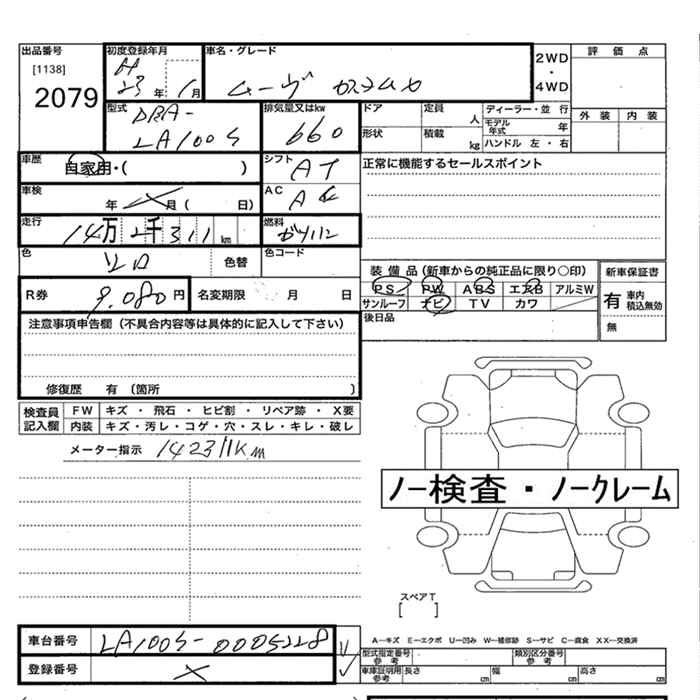 出品番号
[1138]
2079
初度登録年月
H
23 年 1 月
車名・グレード
ムーヴ カスタム
2WD
・
4WD
評 価 点
外 装 内 装
型式
DBA-
LA100S
排気量又はkw
660
ドア
定員
人
ディーラー・並 行
モデル
年式
年
形状
積載
kg
ハンドル 左 ・ 右
車歴
自家用・( )
シフト
AT
正常に機能するセールスポイント
車検
年 月 ( 日)
AC
走行
14万 2千 311 km
燃料
ガソリン
色
シロ
色替
色コード
装 備 品 (新車からの純正品に限り○印)
新車保証書
PS PW ABS エアB アルミW
サンルーフ ナビ TV カワ
有
車内
積込無効
無
後日品
R券
9.080 円
名変期限 月 日
注意事項申告欄 (不具合内容等は具体的に記入して下さい)
修復歴 有 (箇所 )
検査員
記入欄
FW キズ ・ 飛石 ・ ヒビ割 ・ リペア跡 ・ X要
内装 キズ・汚レ・コゲ・穴・スレ・キレ・破レ
メーター指示 142311Km
ノー検査・ノークレーム
スペアT
[ ]
車台番号
LA100S-0005228
登録番号
A－キズ E－エクボ U－凹み W－補修跡 S－サビ C－腐食 XX－交換済
型式指定番号
参 考
類別区分番号
参 考
車庫証明用
参考
長さ cm 幅 cm 高さ cm